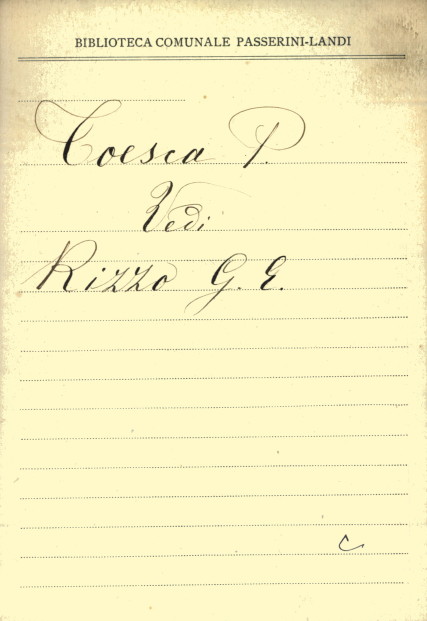 BIBLIOTECA COMUNALE PASSERINI-LANDI
Toesca P.
Vedi
Rizzo G. E.
c